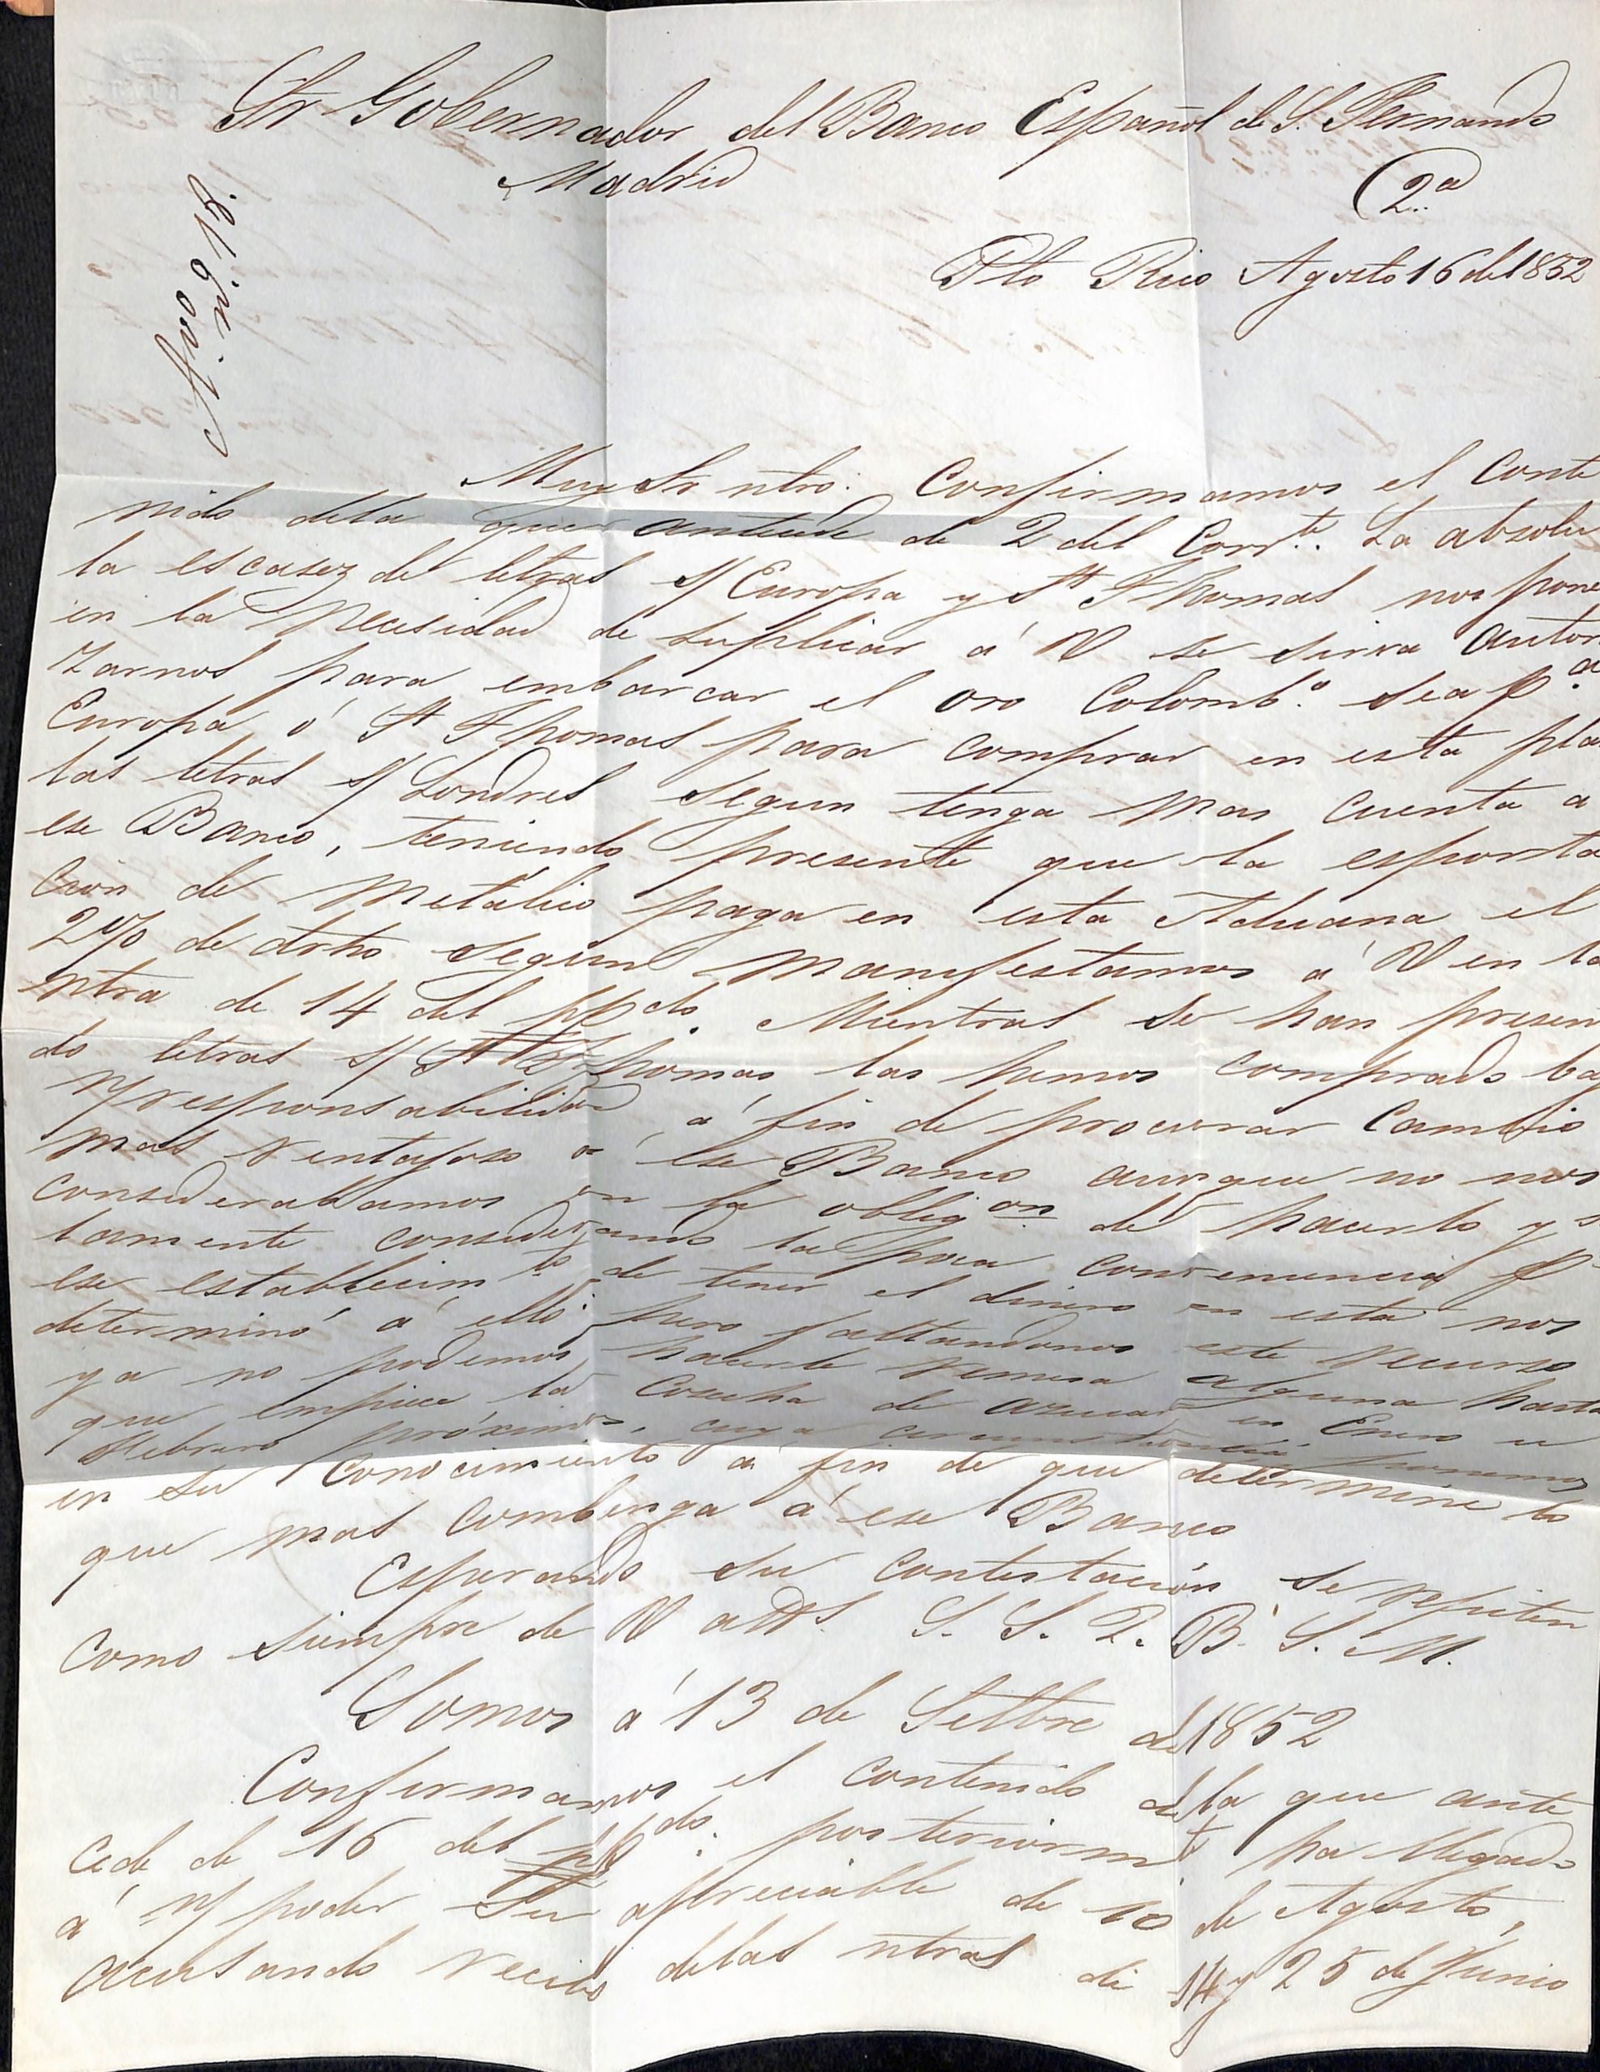 Sr Gobernador del Banco Español de S. Fernando
Madrid
2ª
Pto Rico Agosto 16 de 1852
Muy Sr ntro: Confirmamos el conte
nido dela que antecede de 2 del Corrte. La absolu
ta escasez de letras s/ Europa y St Thomas nos pone
en la necesidad de suplicar á V se sirva autori
zarnos para embarcar el oro Colombº. sea pª.
Europa ó St Thomas para comprar en esta pla
las letras s/ Londres segun tenga mas cuenta a
ese Banco, teniendo presente que la esporta
cion de metálico paga en esta Aduana el
2% de drho segun manifestamos á V en la
ntra de 14 del ppdo. Mientras se han presen
do letras s/ St Thomas las hemos comprado ba
n/ responsabilidad, á fin de procurar cambio
mas ventajoso a ese Banco aunque no nos
considerabamos en la obligon de hacerlo y s
lamente considerando la poca conveniencia pª
ese establecimto de tener el dinero en esta nos
determinó á ello: pero faltandonos este recurso
ya no podemos hacerle remesa alguna hasta
que empiece la cosecha de azucar en Enero u
Febrero próximos, cuya circunstancia ponemos
en su conocimiento á fin de que determine lo
que mas combenga á ese Banco
Esperando su contestación se repiten
como siempre de V atts. S. S. Q. B. S. M.
Somos á 13 de Setbre de 1852
Confirmamos el contenido de la que ante
cede de 16 del ppdo. posteriormte ha llegado
á n/ poder su apreciable de 10 de Agosto,
acusando recibo delas ntras de 14 y 25 de Junio